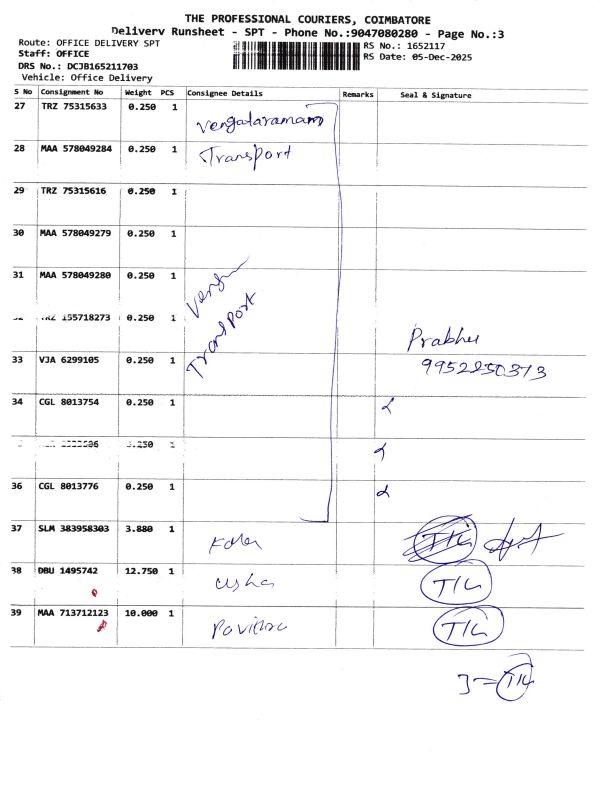 THE PROFESSIONAL COURIERS, COIMBATORE
Delivery Runsheet - SPT - Phone No.:9047080280 - Page No.:3
Route: OFFICE DELIVERY SPT
RS No.: 1652117
Staff: OFFICE
RS Date: 05-Dec-2025
DRS No.: DCJB165211703
Vehicle: Office Delivery
S No Consignment No Weight PCS Consignee Details Remarks Seal & Signature
27 TRZ 75315633 0.250 1 Vengataramam
28 MAA 578049284 0.250 1 Transport
29 TRZ 75315616 0.250 1
30 MAA 578049279 0.250 1
31 MAA 578049280 0.250 1
TRZ 155718273 0.250 1
Transport
Prabhu
33 VJA 6299105 0.250 1 9952250373
34 CGL 8013754 0.250 1
36 CGL 8013776 0.250 1
37 SLM 383958303 3.880 1
38 DBU 1495742 12.750 1 usha
39 MAA 713712123 10.000 1 Pavithra